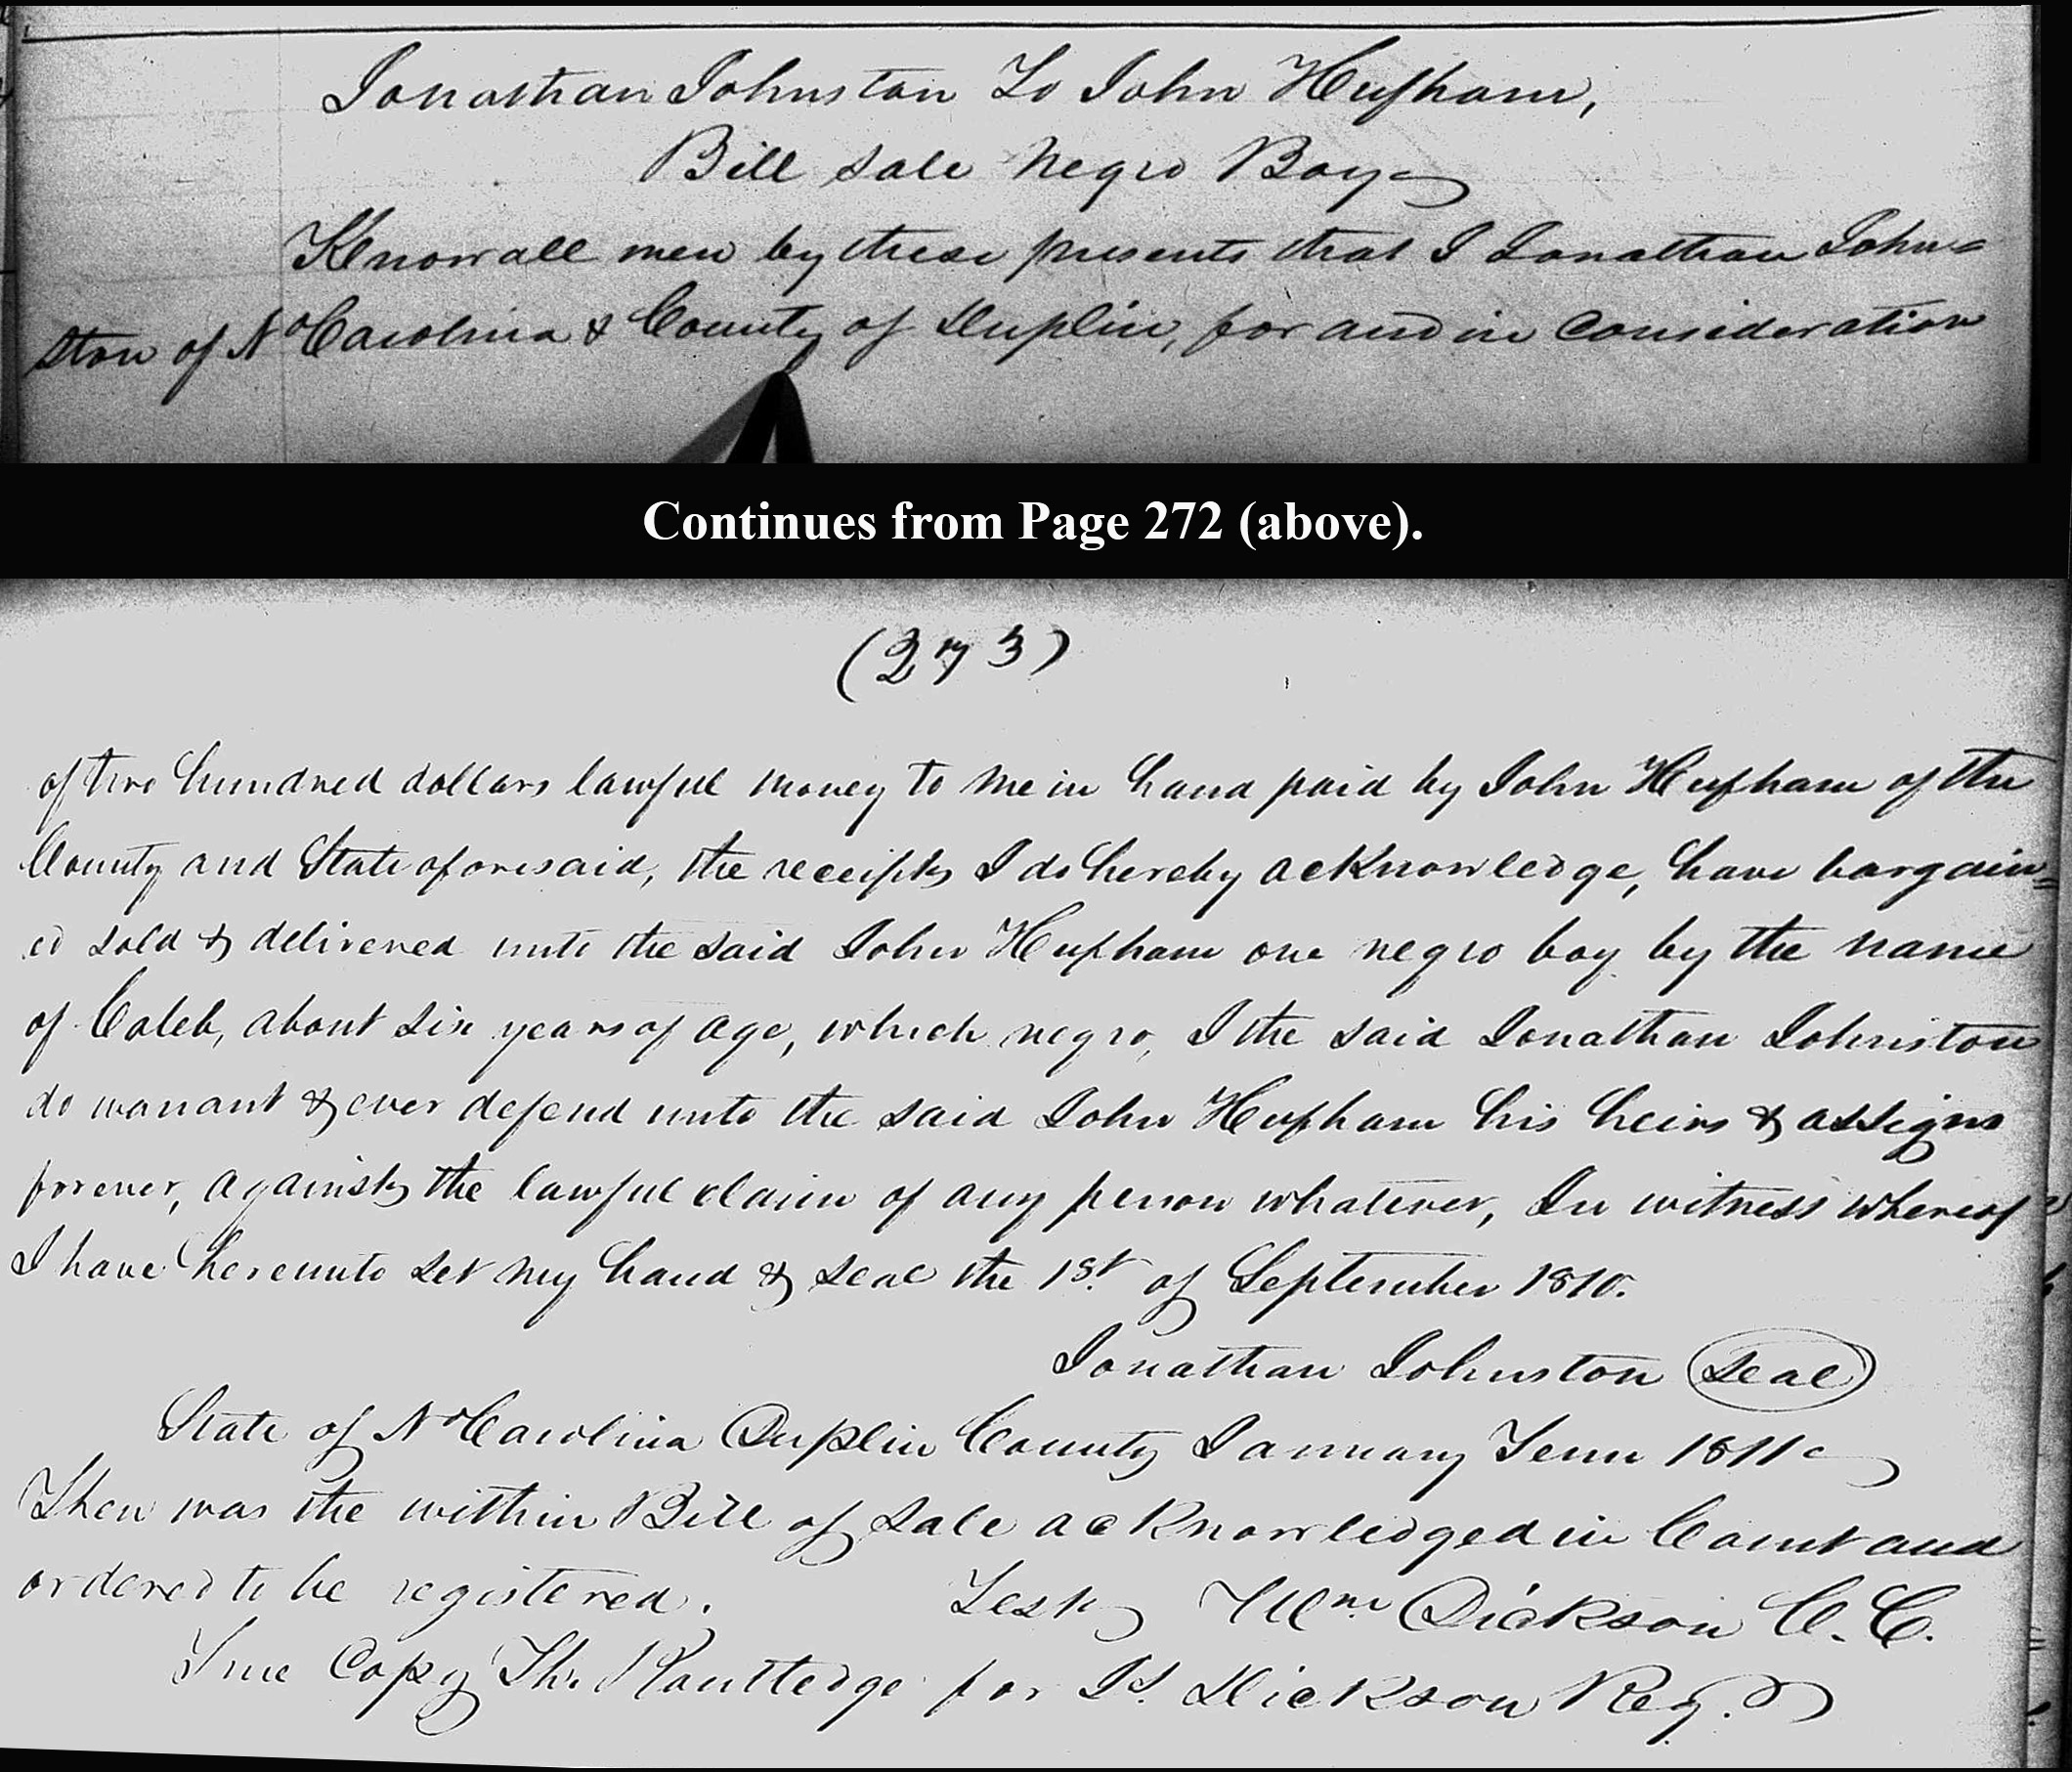 Jonathan Johnston To John Hufham,
Bill Sale Negro Boy
Know all men by these presents that I Jonathan John=
ston of No Carolina & County of Duplin, for and in Consideration
Continues from Page 272 (above).
(273)
of two hundred dollars lawful money to me in hand paid by John Hufham of the
County and State aforesaid, the receipt I do hereby acknowledge, have bargain=
ed sold & delivered unto the said John Hufham one negro boy by the name
of Caleb, about six years of age, which negro, I the said Jonathan Johnston
do warrant & ever defend unto the said John Hufham his heirs & assigns
forever, against the lawful claim of any person whatever, In witness whereof
I have hereunto set my hand & seal the 1st. of September 1810.
Jonathan Johnston Seal
State of No Carolina Duplin County January Term 1811
Then was the within Bill of Sale acknowledged in Court and
ordered to be registered. Test Wm. Dickson C. C.
True Copy Th. Routledge for Js. Dickson Reg.